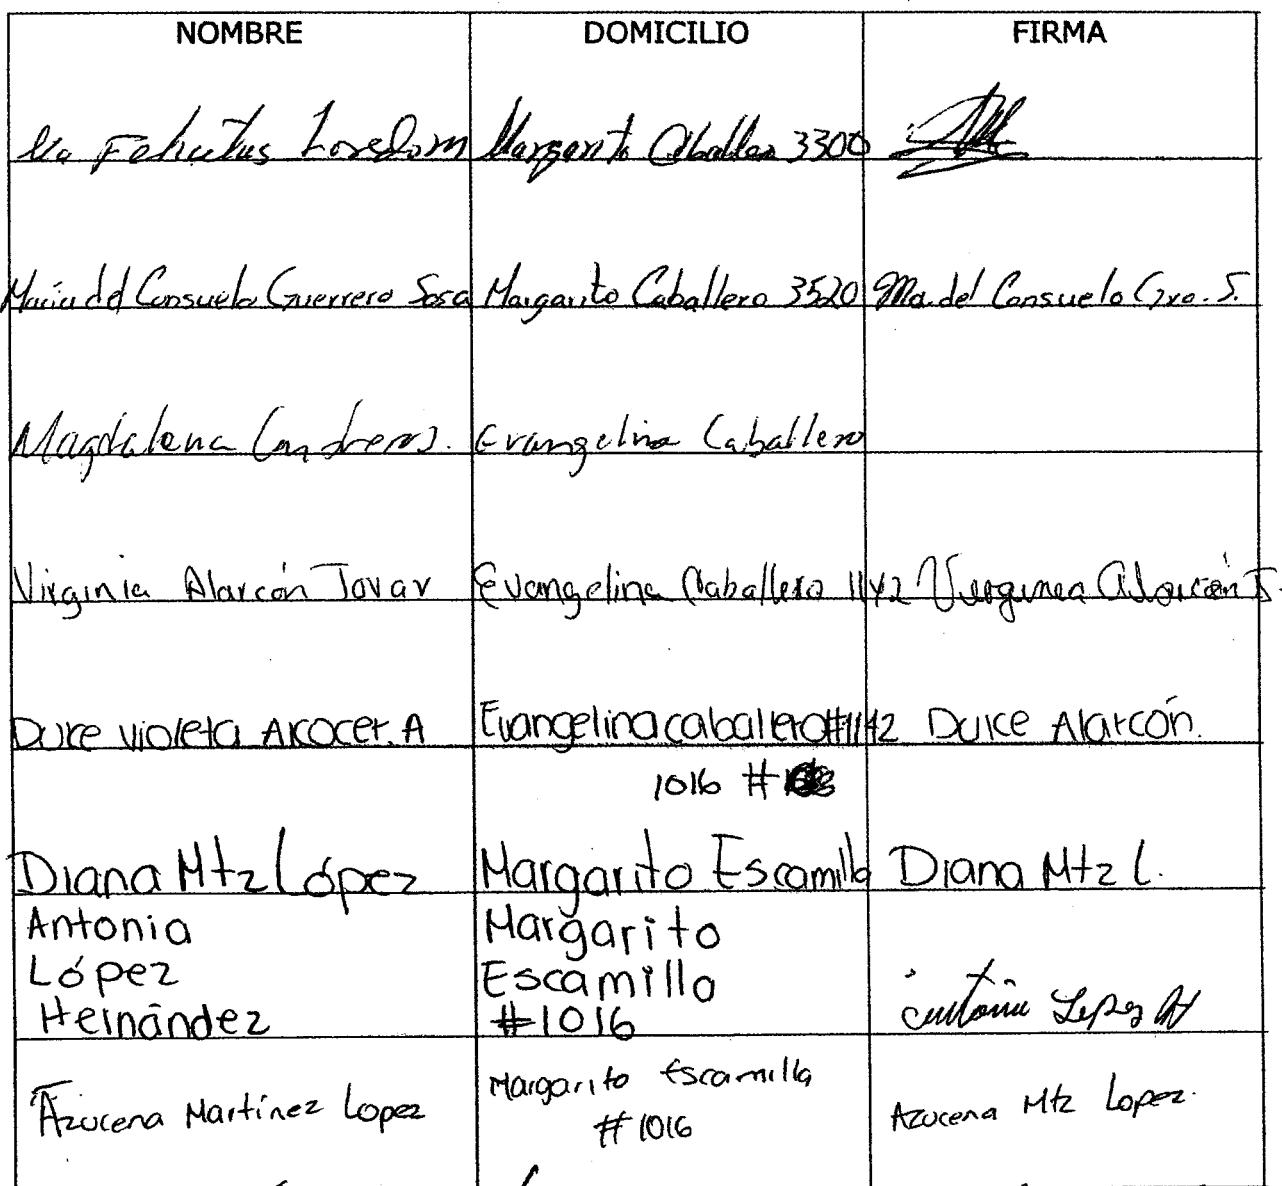 NOMBRE DOMICILIO FIRMA
Ma Felicitas Loredom Margarito Caballero 3300
Maria del Consuelo Guerrero Sosa Margarito Caballero 3520 Ma. del Consuelo Gro. S.
Magdalena Evangelina Caballero
Virginia Alarcón Tovar Evangelina Caballero 1142 Virginea Alarcón T.
Dulce violeta Alcocer. A Evangelina caballero #1142 Dulce Alarcón.
1016 #
Diana Mtz López Margarito Escamilla Diana Mtz L.
Antonia Margarito
López Escamillo
Hernández #1016 Antonia Lopez H
Azucena Martínez Lopez Margarito Escamilla Azucena Mtz Lopez.
#1016